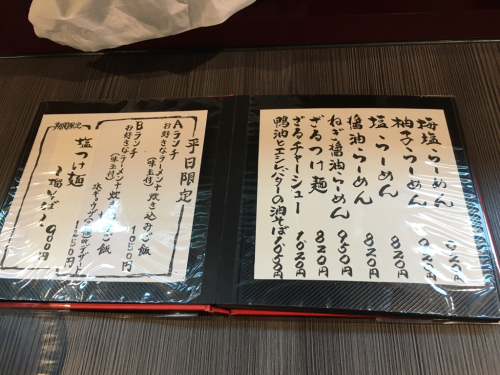 梅塩らーめん 920円
柚子らーめん 920円
塩らーめん 820円
醤油らーめん 820円
ねぎ醤油らーめん 950円
ざるつけ麺 820円
ざるチャーシュー 1020円
鴨油とエシレバターの油そば 1050円
平日限定
Aランチ
お好きなラーメン+炊き込みご飯
(味玉付) 1050円
Bランチ
お好きなラーメン+炊き込みご飯
(味玉付)
1250円
期間限定
塩つけ麺
900円